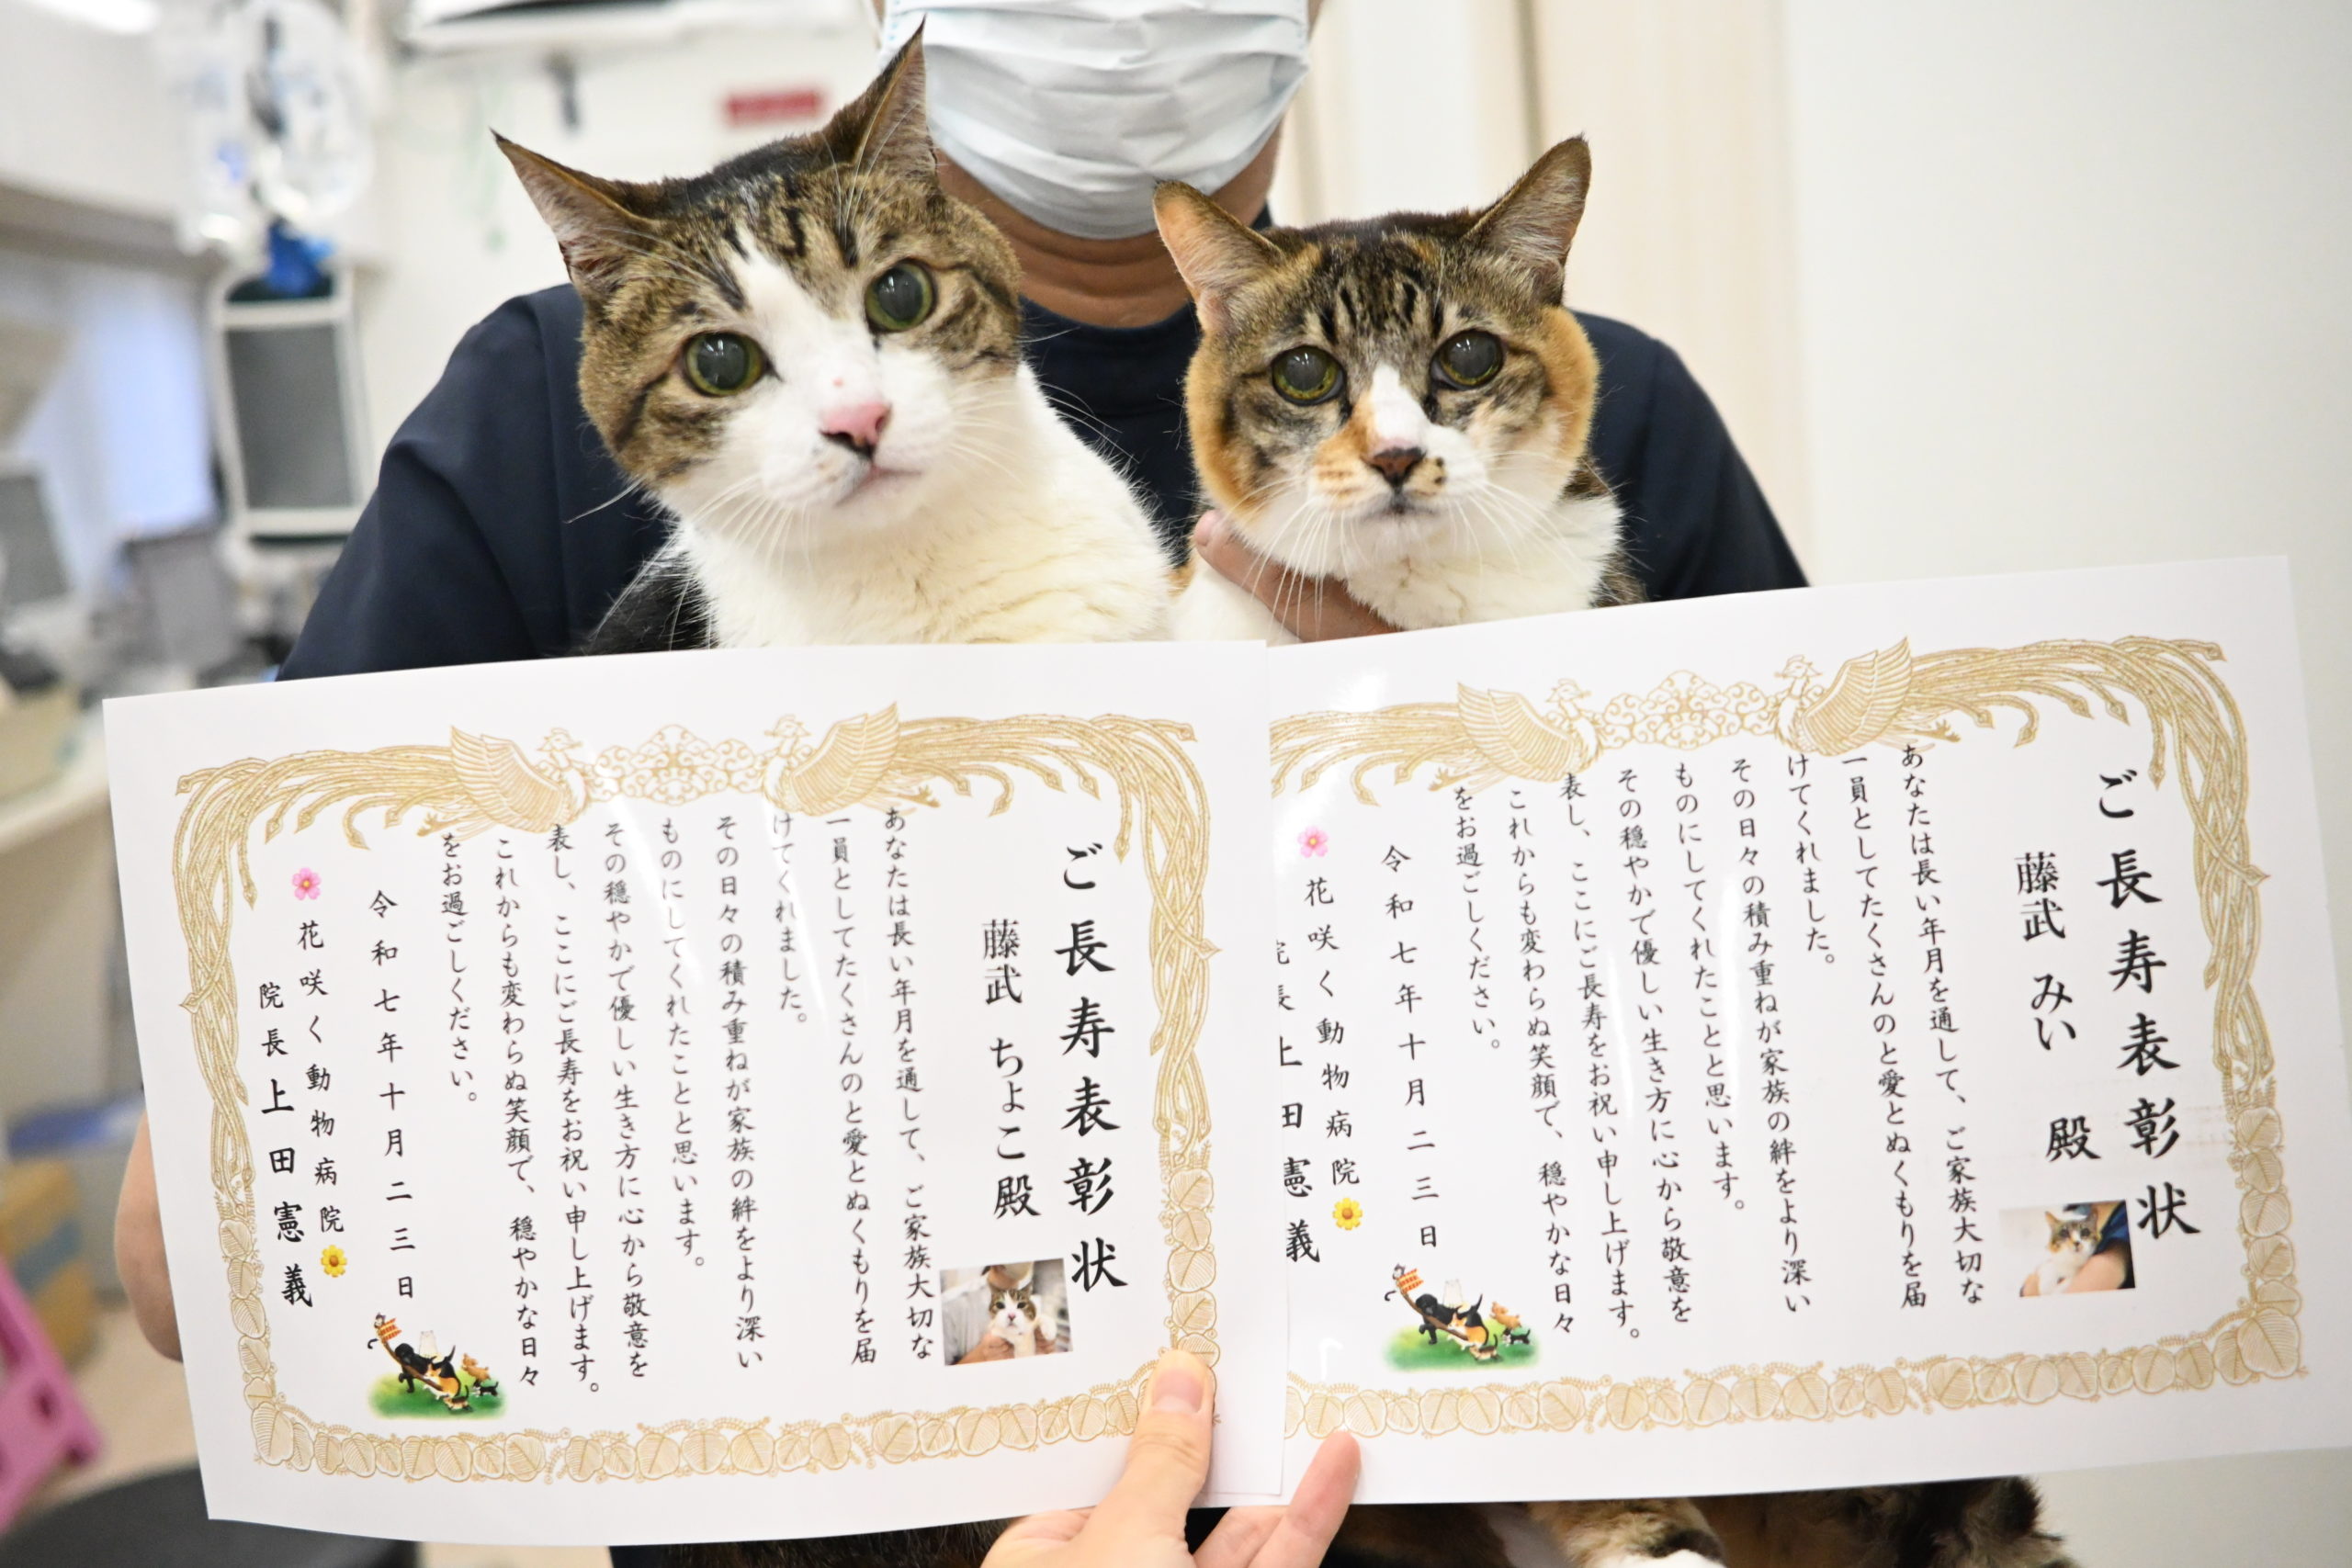 ご長寿表彰状
藤武 ちょこ 殿
あなたは長い年月を通して、ご家族大切な
一員としてたくさんのと愛とぬくもりを届
けてくれました。
その日々の積み重ねが家族の絆をより深い
ものにしてくれたことと思います。
その穏やかで優しい生き方に心から敬意を
表し、ここにご長寿をお祝い申し上げます。
これからも変わらぬ笑顔で、穏やかな日々
をお過ごしください。
令和七年十月二三日
花咲く動物病院
院長上田憲義
ご長寿表彰状
藤武 みい 殿
あなたは長い年月を通して、ご家族大切な
一員としてたくさんのと愛とぬくもりを届
けてくれました。
その日々の積み重ねが家族の絆をより深い
ものにしてくれたことと思います。
その穏やかで優しい生き方に心から敬意を
表し、ここにご長寿をお祝い申し上げます。
これからも変わらぬ笑顔で、穏やかな日々
をお過ごしください。
令和七年十月二三日
花咲く動物病院
院長上田憲義